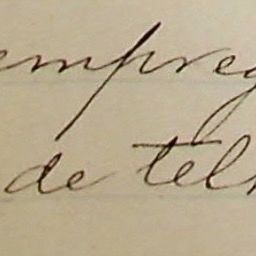 empreg
de tel